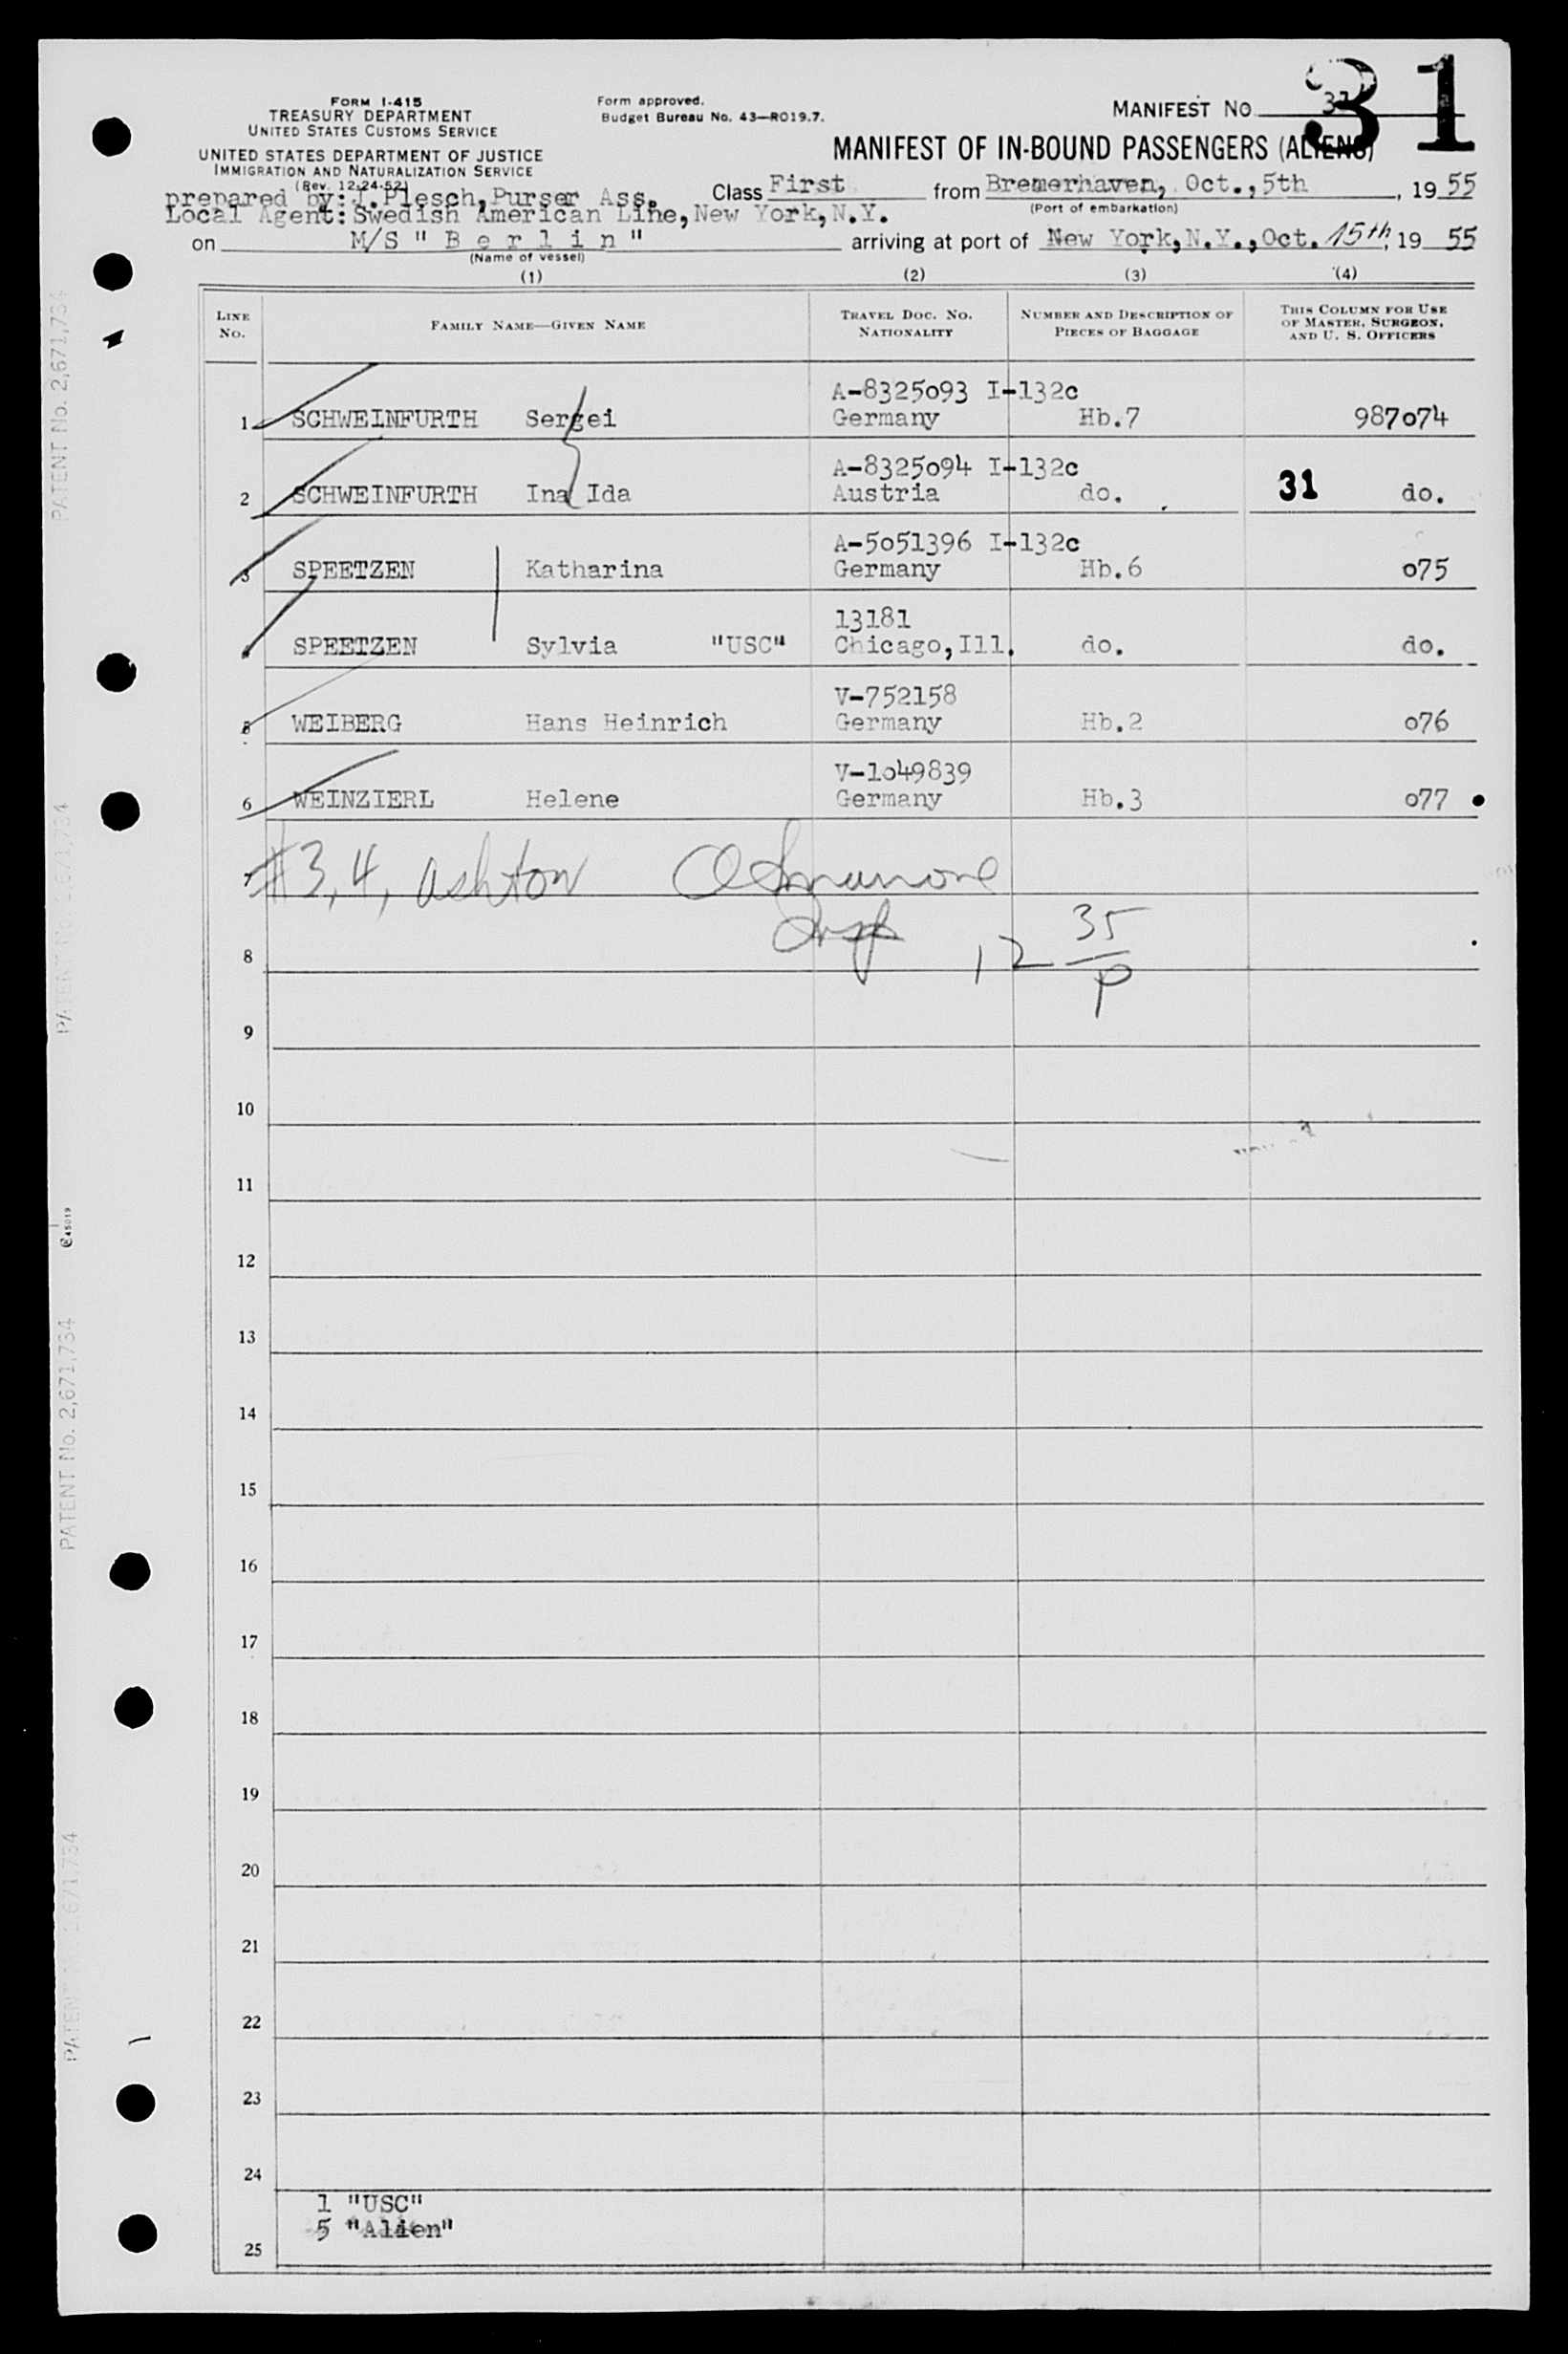 31
FORM I-415
TREASURY DEPARTMENT
UNITED STATES CUSTOMS SERVICE
UNITED STATES DEPARTMENT OF JUSTICE
IMMIGRATION AND NATURALIZATION SERVICE
(Rev. 12-24-52)
Form approved.
Budget Bureau No. 43—RO19.7.
MANIFEST NO. 31
MANIFEST OF IN-BOUND PASSENGERS (ALIENS)
prepared by: J.Plesch,Purser Ass. Class First from Bremerhaven, Oct.,5th, 1955
(Port of embarkation)
Local Agent: Swedish American Line, New York,N.Y.
on M/S " B e r l i n " arriving at port of New York,N.Y.,Oct. 15th, 1955
(Name of vessel)
(1) (2) (3) (4)
LINE No. FAMILY NAME—GIVEN NAME TRAVEL DOC. NO. NATIONALITY NUMBER AND DESCRIPTION OF PIECES OF BAGGAGE THIS COLUMN FOR USE OF MASTER, SURGEON, AND U. S. OFFICERS
A-8325093 I-132c
1 SCHWEINFURTH Sergei Germany Hb.7 987074
A-8325094 I-132c
2 SCHWEINFURTH Ina Ida Austria do. 31 do.
A-5051396 I-132c
3 SPEETZEN Katharina Germany Hb.6 075
13181
4 SPEETZEN Sylvia "USC" Chicago,Ill. do. do.
V-752158
5 WEIBERG Hans Heinrich Germany Hb.2 076
V-1049839
6 WEINZIERL Helene Germany Hb.3 077
7 #3,4, Ashton
8 12 35/P
9
10
11
12
13
14
15
16
17
18
19
20
21
22
23
24
1 "USC"
5 "Alien"
25
PATENT No. 2,671,734
PATENT No. 2,671,734
C45019
PATENT No. 2,671,734
PATENT No. 2,671,734